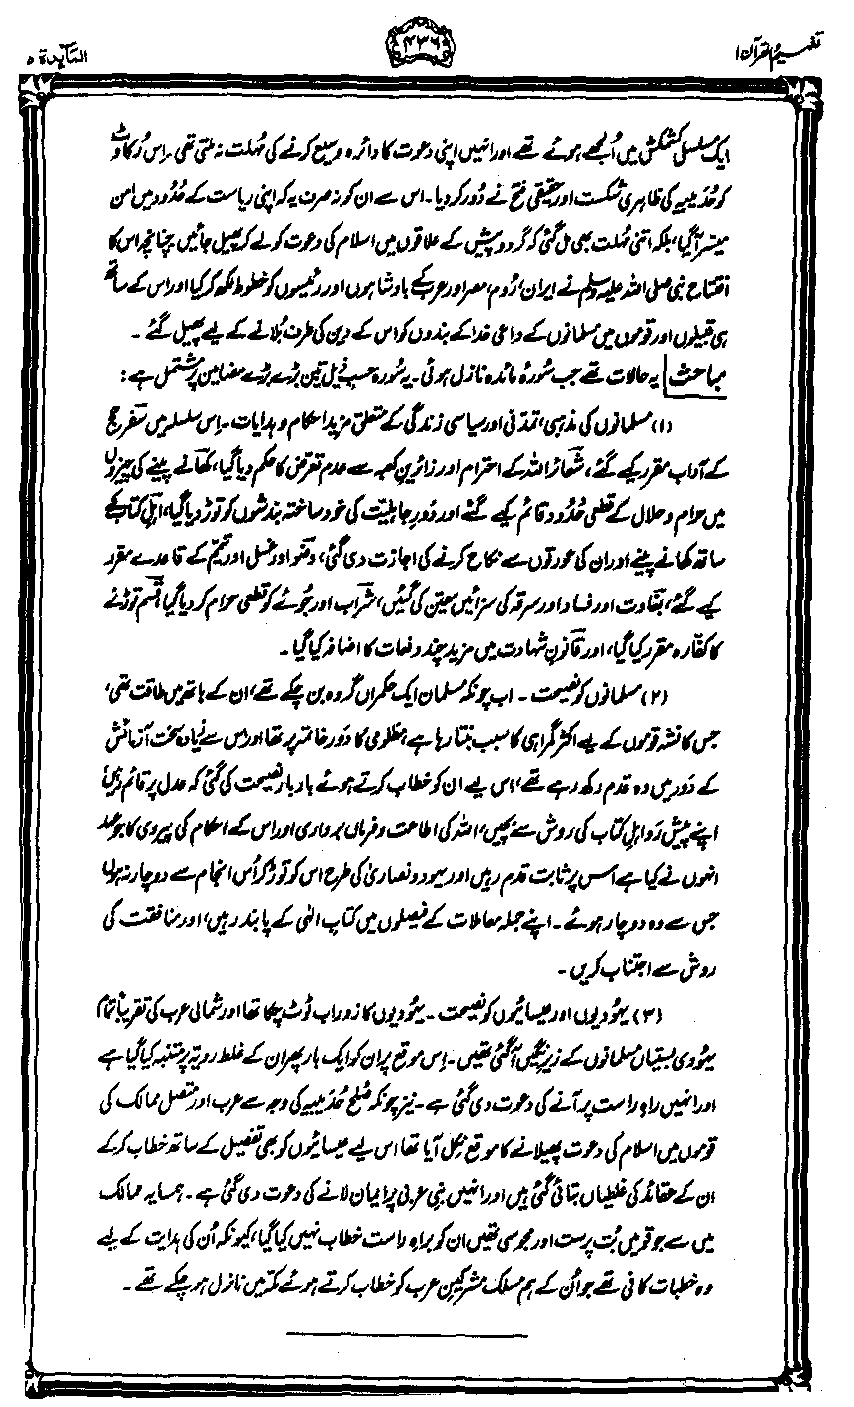 تفہیم القرآن ۱
۴۳۶
المآئدۃ ۵
ایک مسلسل کشمکش میں اُلجھے ہوئے تھے اور انہیں اپنی دعوت کا دائرہ وسیع کرنے کی مُہلت نہ ملتی تھی۔ اِس رُکاوٹ
کو حُدَیبیہ کی ظاہری شکست اور حقیقی فتح نے دُور کر دیا۔ اس سے ان کو نہ صرف یہ کہ اپنی ریاست کے حُدُود میں امن
میسّر آگیا، بلکہ اتنی مُہلت بھی مل گئی کہ گرد و پیش کے علاقوں میں اسلام کی دعوت کو لے کر پھیل جائیں چنانچہ اس کا
افتتاح نبی صلی اللہ علیہ وسلم نے ایران، رُوم، مصر اور عرب کے بادشاہوں اور رئیسوں کو خطوط لکھ کر کیا اور اس کے ساتھ
ہی قبیلوں اور قوموں میں مسلمانوں کے داعی خدا کے بندوں کو اس کے دین کی طرف بُلانے کے لیے پھیل گئے۔
مباحث یہ حالات تھے جب سُورۂ مائدہ نازل ہوئی۔ یہ سُورہ حسبِ ذیل تین بڑے بڑے مضامین پر مشتمل ہے:
(۱) مسلمانوں کی مذہبی، تمدنی اور سیاسی زندگی کے متعلق مزید احکام و ہدایات۔ اِس سلسلہ میں سفرِ حج
کے آداب مقرر کیے گئے، شعائر اللہ کے احترام اور زائرینِ کعبہ سے عدم تعرض کا حکم دیا گیا، کھانے پینے کی چیزوں
میں حرام و حلال کے قطعی حُدُود قائم کیے گئے اور دَورِ جاہلیت کی خود ساختہ بندشوں کو توڑ دیا گیا، اہلِ کتاب کے
ساتھ کھانے پینے اور ان کی عورتوں سے نکاح کرنے کی اجازت دی گئی، وضو اور غسل اور تیمّم کے قاعدے مقرر
کیے گئے، بغاوت اور فساد اور سرقہ کی سزائیں معیّن کی گئیں، شراب اور جُوئے کو قطعی حرام کر دیا گیا، قسم توڑنے
کا کفّارہ مقرر کیا گیا، اور قانونِ شہادت میں مزید چند دفعات کا اضافہ کیا گیا۔
(۲) مسلمانوں کو نصیحت۔ اب چونکہ مسلمان ایک حکمراں گروہ بن چکے تھے، ان کے ہاتھ میں طاقت تھی،
جس کا نشہ قوموں کے لیے اکثر گمراہی کا سبب بنتا رہا ہے، مظلومی کا دَور خاتمہ پر تھا اور اس سے زیادہ سخت آزمائش
کے دَور میں وہ قدم رکھ رہے تھے، اس لیے ان کو خطاب کرتے ہوئے بار بار نصیحت کی گئی کہ عدل پر قائم رہیں،
اپنے پیش رَو اہلِ کتاب کی روش سے بچیں، اللہ کی اطاعت و فرماں برداری اور اس کے احکام کی پیروی کا جو عہد
انہوں نے کیا ہے اُس پر ثابت قدم رہیں اور یہود و نصاریٰ کی طرح اس کو توڑ کر اُس انجام سے دوچار نہ ہوں
جس سے وہ دوچار ہوئے۔ اپنے جملہ معاملات کے فیصلوں میں کتابِ الٰہی کے پابند رہیں، اور منافقت کی
روش سے اجتناب کریں۔
(۳) یہودیوں اور عیسائیوں کو نصیحت۔ یہودیوں کا زور اب ٹوٹ چکا تھا اور شمالی عرب کی تقریباً تمام
یہودی بستیاں مسلمانوں کے زیرِنگیں آگئی تھیں۔ اِس موقع پر ان کو ایک بار پھر ان کے غلط رویّہ پر متنبّہ کیا گیا ہے
اور انہیں راہِ راست پر آنے کی دعوت دی گئی ہے۔ نیز چونکہ صُلح حُدَیبیہ کی وجہ سے عرب اور متصل ممالک کی
قوموں میں اسلام کی دعوت پھیلانے کا موقع نکل آیا تھا اس لیے عیسائیوں کو بھی تفصیل کے ساتھ خطاب کر کے
ان کے عقائد کی غلطیاں بتائی گئی ہیں اور انہیں نبیِ عربی پر ایمان لانے کی دعوت دی گئی ہے۔ ہمسایہ ممالک
میں سے جو قومیں بُت پرست اور مجوسی تھیں ان کو براہِ راست خطاب نہیں کیا گیا، کیونکہ اُن کی ہدایت کے لیے
وہ خطبات کافی تھے جو اُن کے ہم مسلک مشرکینِ عرب کو خطاب کرتے ہوئے مکّہ میں نازل ہو چکے تھے۔